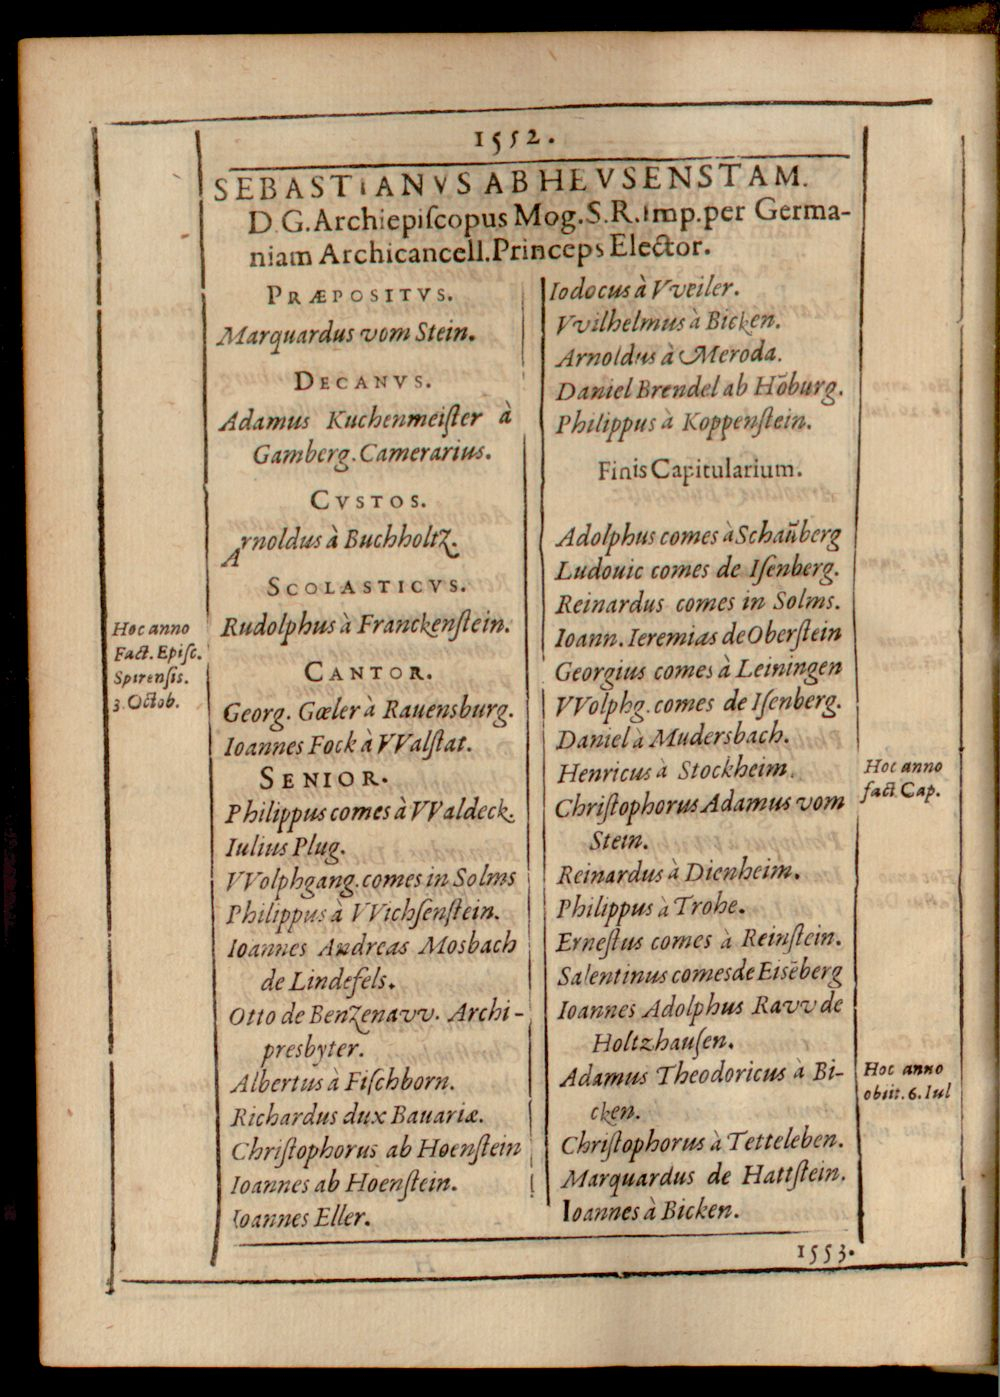 1552.
SEBASTIANVS AB HEVSENSTAM.
D.G. Archiepiſcopus Mog. S.R. Imp. per Germa-
niam Archicancell. Princeps Elector.
PRÆPOSITVS.
Marquardus vom Stein.
DECANVS.
Adamus Kuchenmeiſter à
Gamberg. Camerarius.
CVSTOS.
Arnoldus à Buchholtz.
SCOLASTICVS.
Hoc anno
Fact. Epiſc.
Spirenſis.
3. Octob.
Rudolphus à Franckenſtein.
CANTOR.
Georg. Gœler à Rauensburg.
Ioannes Fock à VValſtat.
SENIOR.
Philippus comes à VValdeck.
Iulius Plug.
VVolphgang. comes in Solms
Philippus à VVichſenſtein.
Ioannes Andreas Mosbach
de Lindefels.
Otto de Benzenavv. Archi-
presbyter.
Albertus à Fiſchborn.
Richardus dux Bauariæ.
Chriſtophorus ab Hoenſtein
Ioannes ab Hoenſtein.
Ioannes Eller.
Iodocus à Vveiler.
Vvilhelmus à Bicken.
Arnoldus à Meroda.
Daniel Brendel ab Hōburg.
Philippus à Koppenſtein.
Finis Capitularium.
Adolphus comes à Schaūberg
Ludouic comes de Iſenberg.
Reinardus comes in Solms.
Ioann. Ieremias de Oberſtein
Georgius comes à Leiningen
VVolphg. comes de Iſenberg.
Daniel à Mudersbach.
Henricus à Stockheim.
Hoc anno
fact. Cap.
Chriſtophorus Adamus vom
Stein.
Reinardus à Dienheim.
Philippus à Trohe.
Erneſtus comes à Reinſtein.
Salentinus comes de Eisēberg
Ioannes Adolphus Ravv de
Holtzhauſen.
Adamus Theodoricus à Bi-
cken.
Hoc anno
obiit. 6. Iul
Chriſtophorus à Tetteleben.
Marquardus de Hattſtein.
Ioannes à Bicken.
1553.